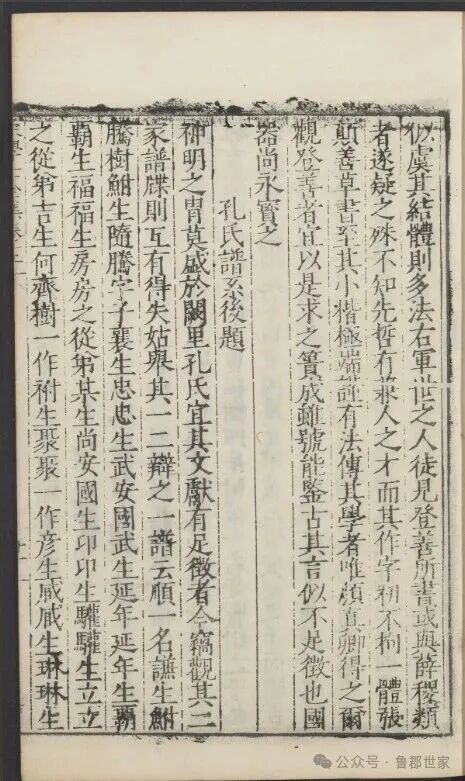 似虞其結體則多法右軍世之人徒見登善所書或與薛稷類
者遂疑之殊不知先哲有兼人之才而其作字初不拘一體張
旭善草書至其小楷極端謹有法傳其學者唯顏真卿得之爾
觀登善者宜以是求之蕢成雖號能鑒古其言似不足徵也國
器尚永寶之
孔氏譜系後題
神明之胄莫盛於闕里孔氏宜其文獻有足徵者今竊觀其二
家譜牒則互有得失姑舉其一二辯之一譜云順一名譙生鮒
騰樹鮒生隨騰字子襄生忠忠生武安國武生延年延年生霸
霸生福福生房房之從弟其生尚安國生卬卬生驩驩生立立
之從弟吉生何齊樹一作祔生聚聚一作彥生臧臧生琳琳生
公众号·鲁郡世家